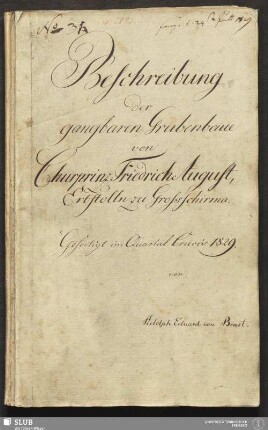 No 3
Beschreibung
der
gangbaren Grubenbaue
von
Churprinz Friedrich August,
Erbstolln zu Grossschirma.
Gefertigt im Quartal Crucis 1829
von
Adolph Eduard von Brast.
SLUB